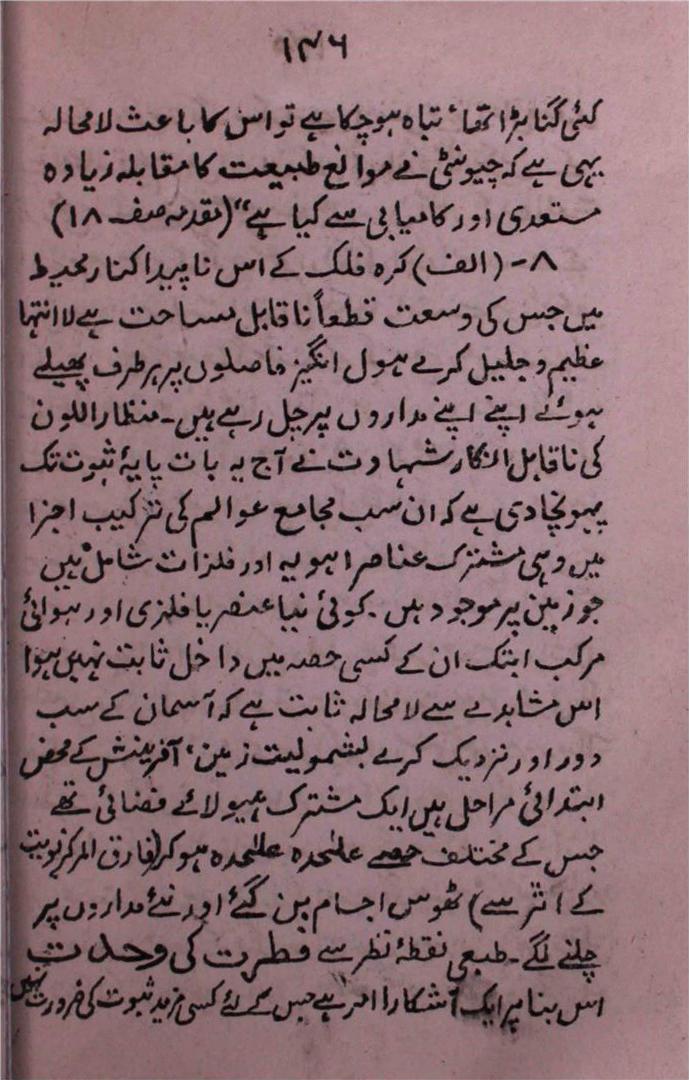 ۱۴۶
کئی گنا بڑا تھا' تباہ ہوچکا ہے تو اس کا باعث لامحالہ
یہی ہے کہ چیونٹی نے موانع طبیعت کا مقابلہ زیادہ
مستعدی اور کامیابی سے کیا ہے" (مقدمہ صفہ ۱۸)
۸- (الف) کرہ فلک کے اس ناپیدا کنار محیط
میں جس کی وسعت قطعاً ناقابل مساحت ہے لا انتہا
عظیم و جلیل کرے ہول انگیز فاصلوں پر ہر طرف پھیلے
ہوئے اپنے اپنے مداروں پر چل رہے ہیں۔ منظار اللون
کی ناقابل انکار شہادت نے آج یہ بات پایۂ ثبوت تک
پہونچا دی ہے کہ ان سب مجامع عوالم کی ترکیب اجزا
میں وہی مشترک عناصر اہویہ اور فلزات شامل ہیں
جو زمین پر موجود ہیں۔ کوئی نیا عنصر یا فلزی اور ہوائی
مرکب ابتک ان کے کسی حصہ میں داخل ثابت نہیں ہوا
اس مشاہدے سے لامحالہ ثابت ہے کہ آسمان کے سب
دور اور نزدیک کرے بشمولیت زمین' آفرینش کے محض
ابتدائی مراحل میں ایک مشترک ہیولائے فضائی تھے
جس کے مختلف حصے علٰحدہ علٰحدہ ہوکر (فارق المرکزئویت
کے اثر سے) ٹھوس اجسام بن گئے اور نئے مداروں پر
چلنے لگے۔ طبعی نقطۂ نظر سے فطرت کی وحدت
اس بنا پر ایک آشکارا امر ہے جس کے لئے کسی مزید ثبوت کی ضرورت نہیں